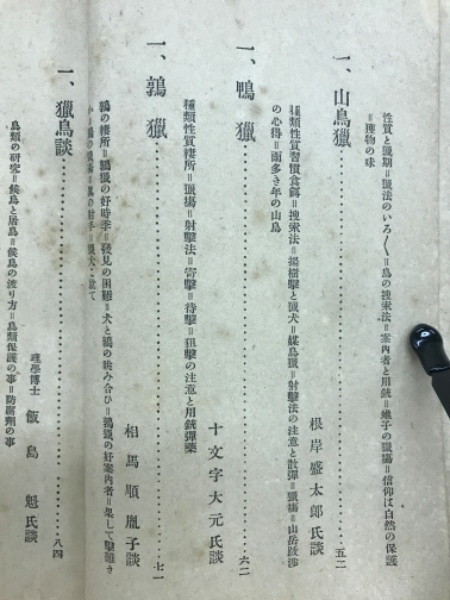 性質と獵期＝獵法のいろ〱＝鳥の搜索法＝案内者と用銃＝雉子の獵場＝信仰は自然の保護
＝獲物の味
一、山鳥獵………………根岸盛太郎氏談…五二
種類性質習慣食餌＝搜索法＝ ＝媒鳥獵＝射擊法の注意と散彈＝獵場＝山岳跋渉
の心得＝雨多き年の山鳥
一、鴨獵………………十文字大元氏談…六二
種類性質棲所＝獵場＝射擊法＝寄擊＝待擊＝狙擊の注意と用銃彈藥
一、鶉獵………………相馬順胤子談…七一
鶉の棲所＝鶉獵の好時季＝發見の困難＝犬と鶉の ＝鶉獵の好案内者＝果して擊難き
か＝
一、獵鳥談………………理學博士 飯島魁氏談…八四
鳥類の研究＝候鳥と居鳥＝候鳥の渡り方＝鳥類保護の事＝防腐劑の事